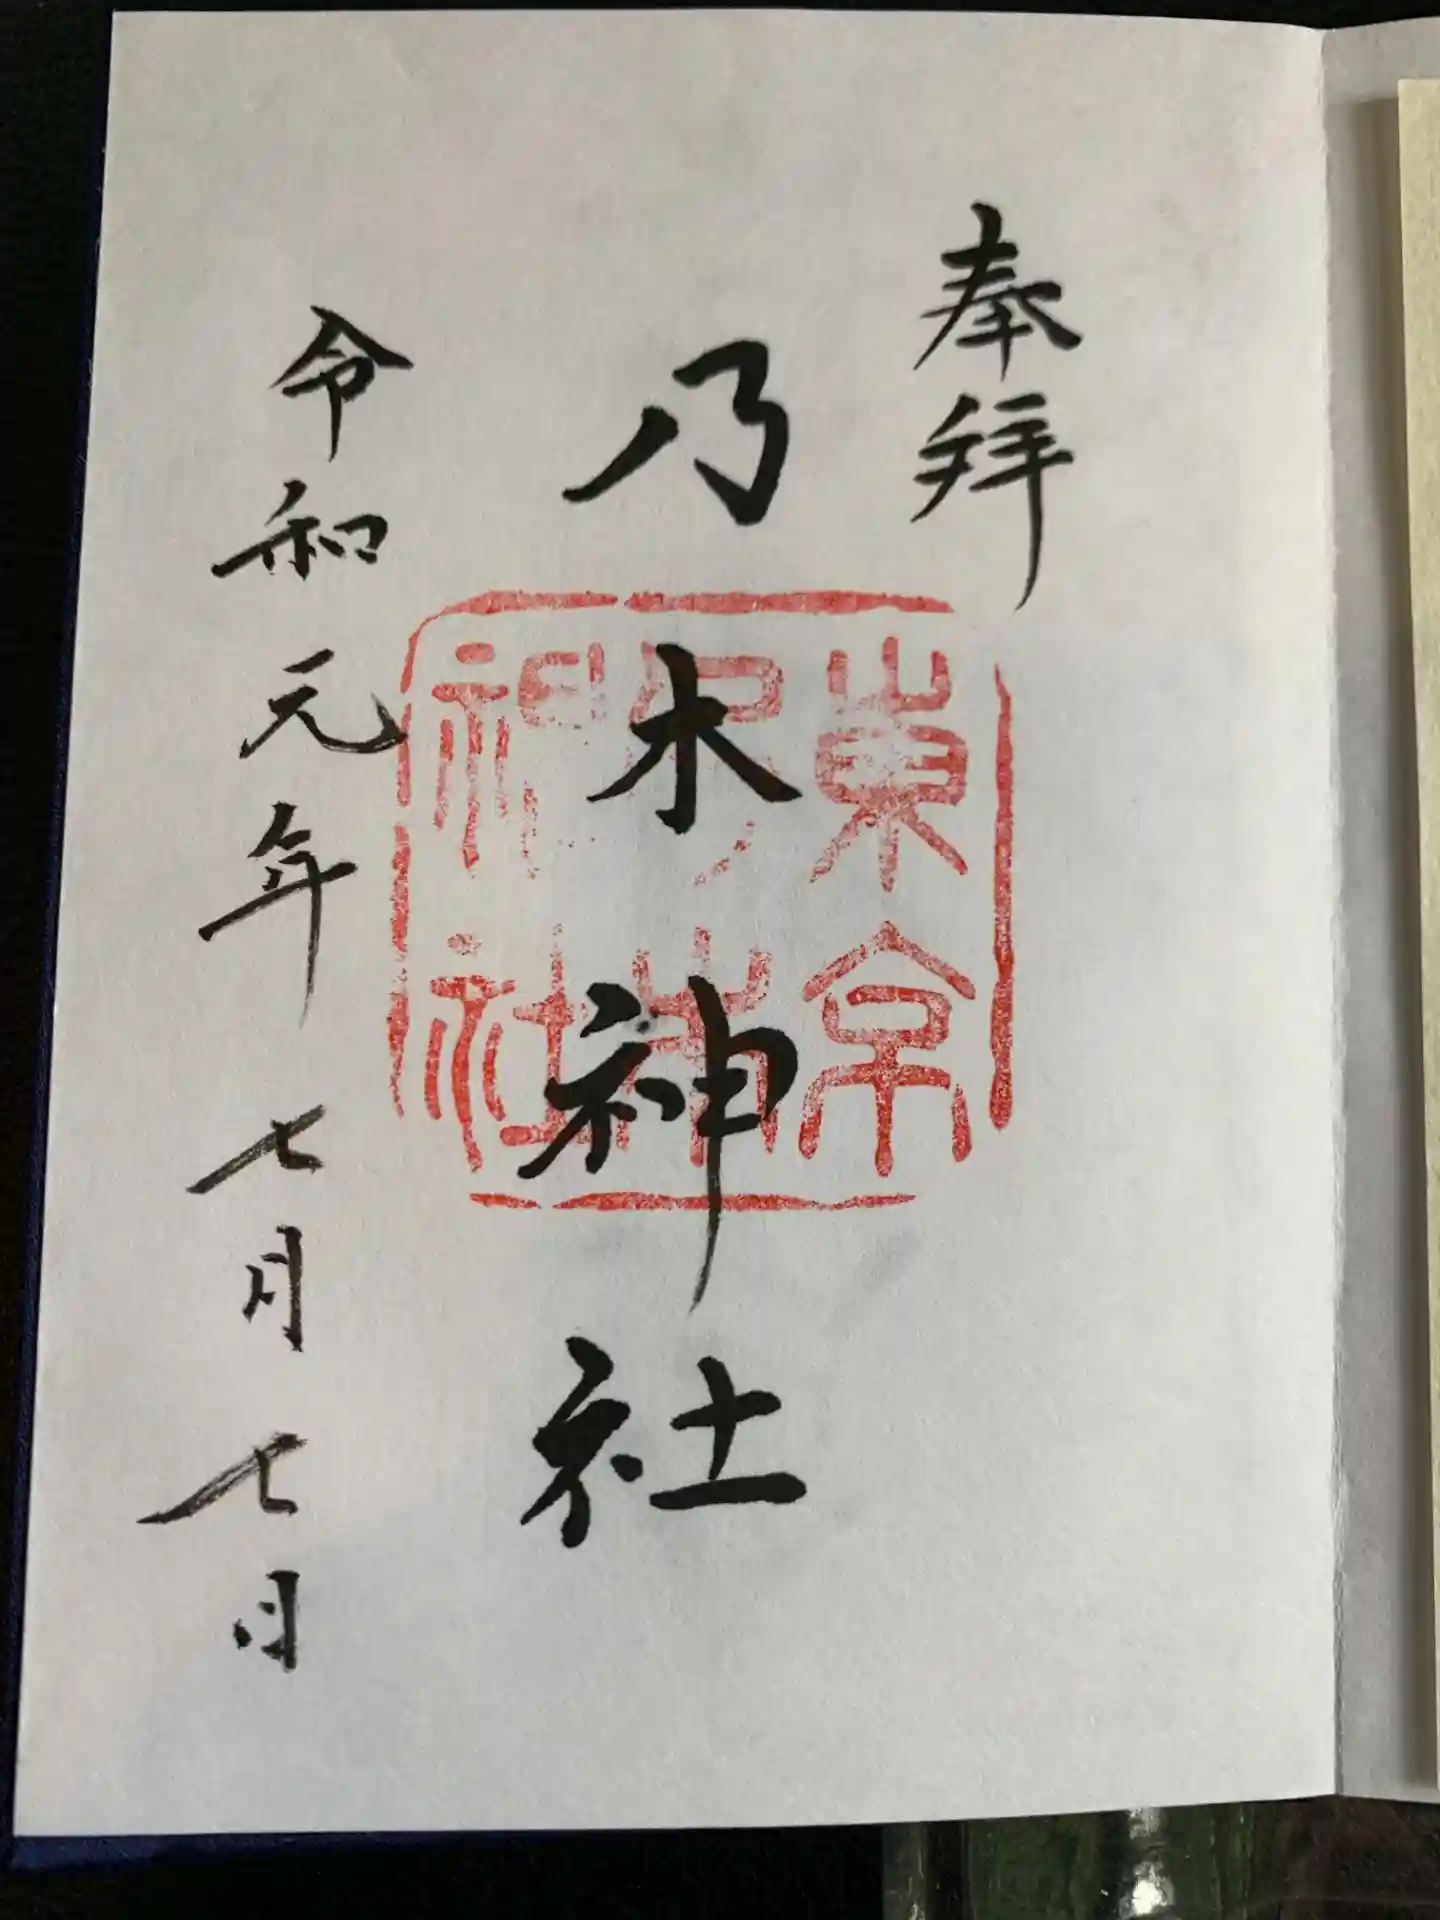 奉拜
乃木神社
東京
乃木
神社
令和元年七月七日